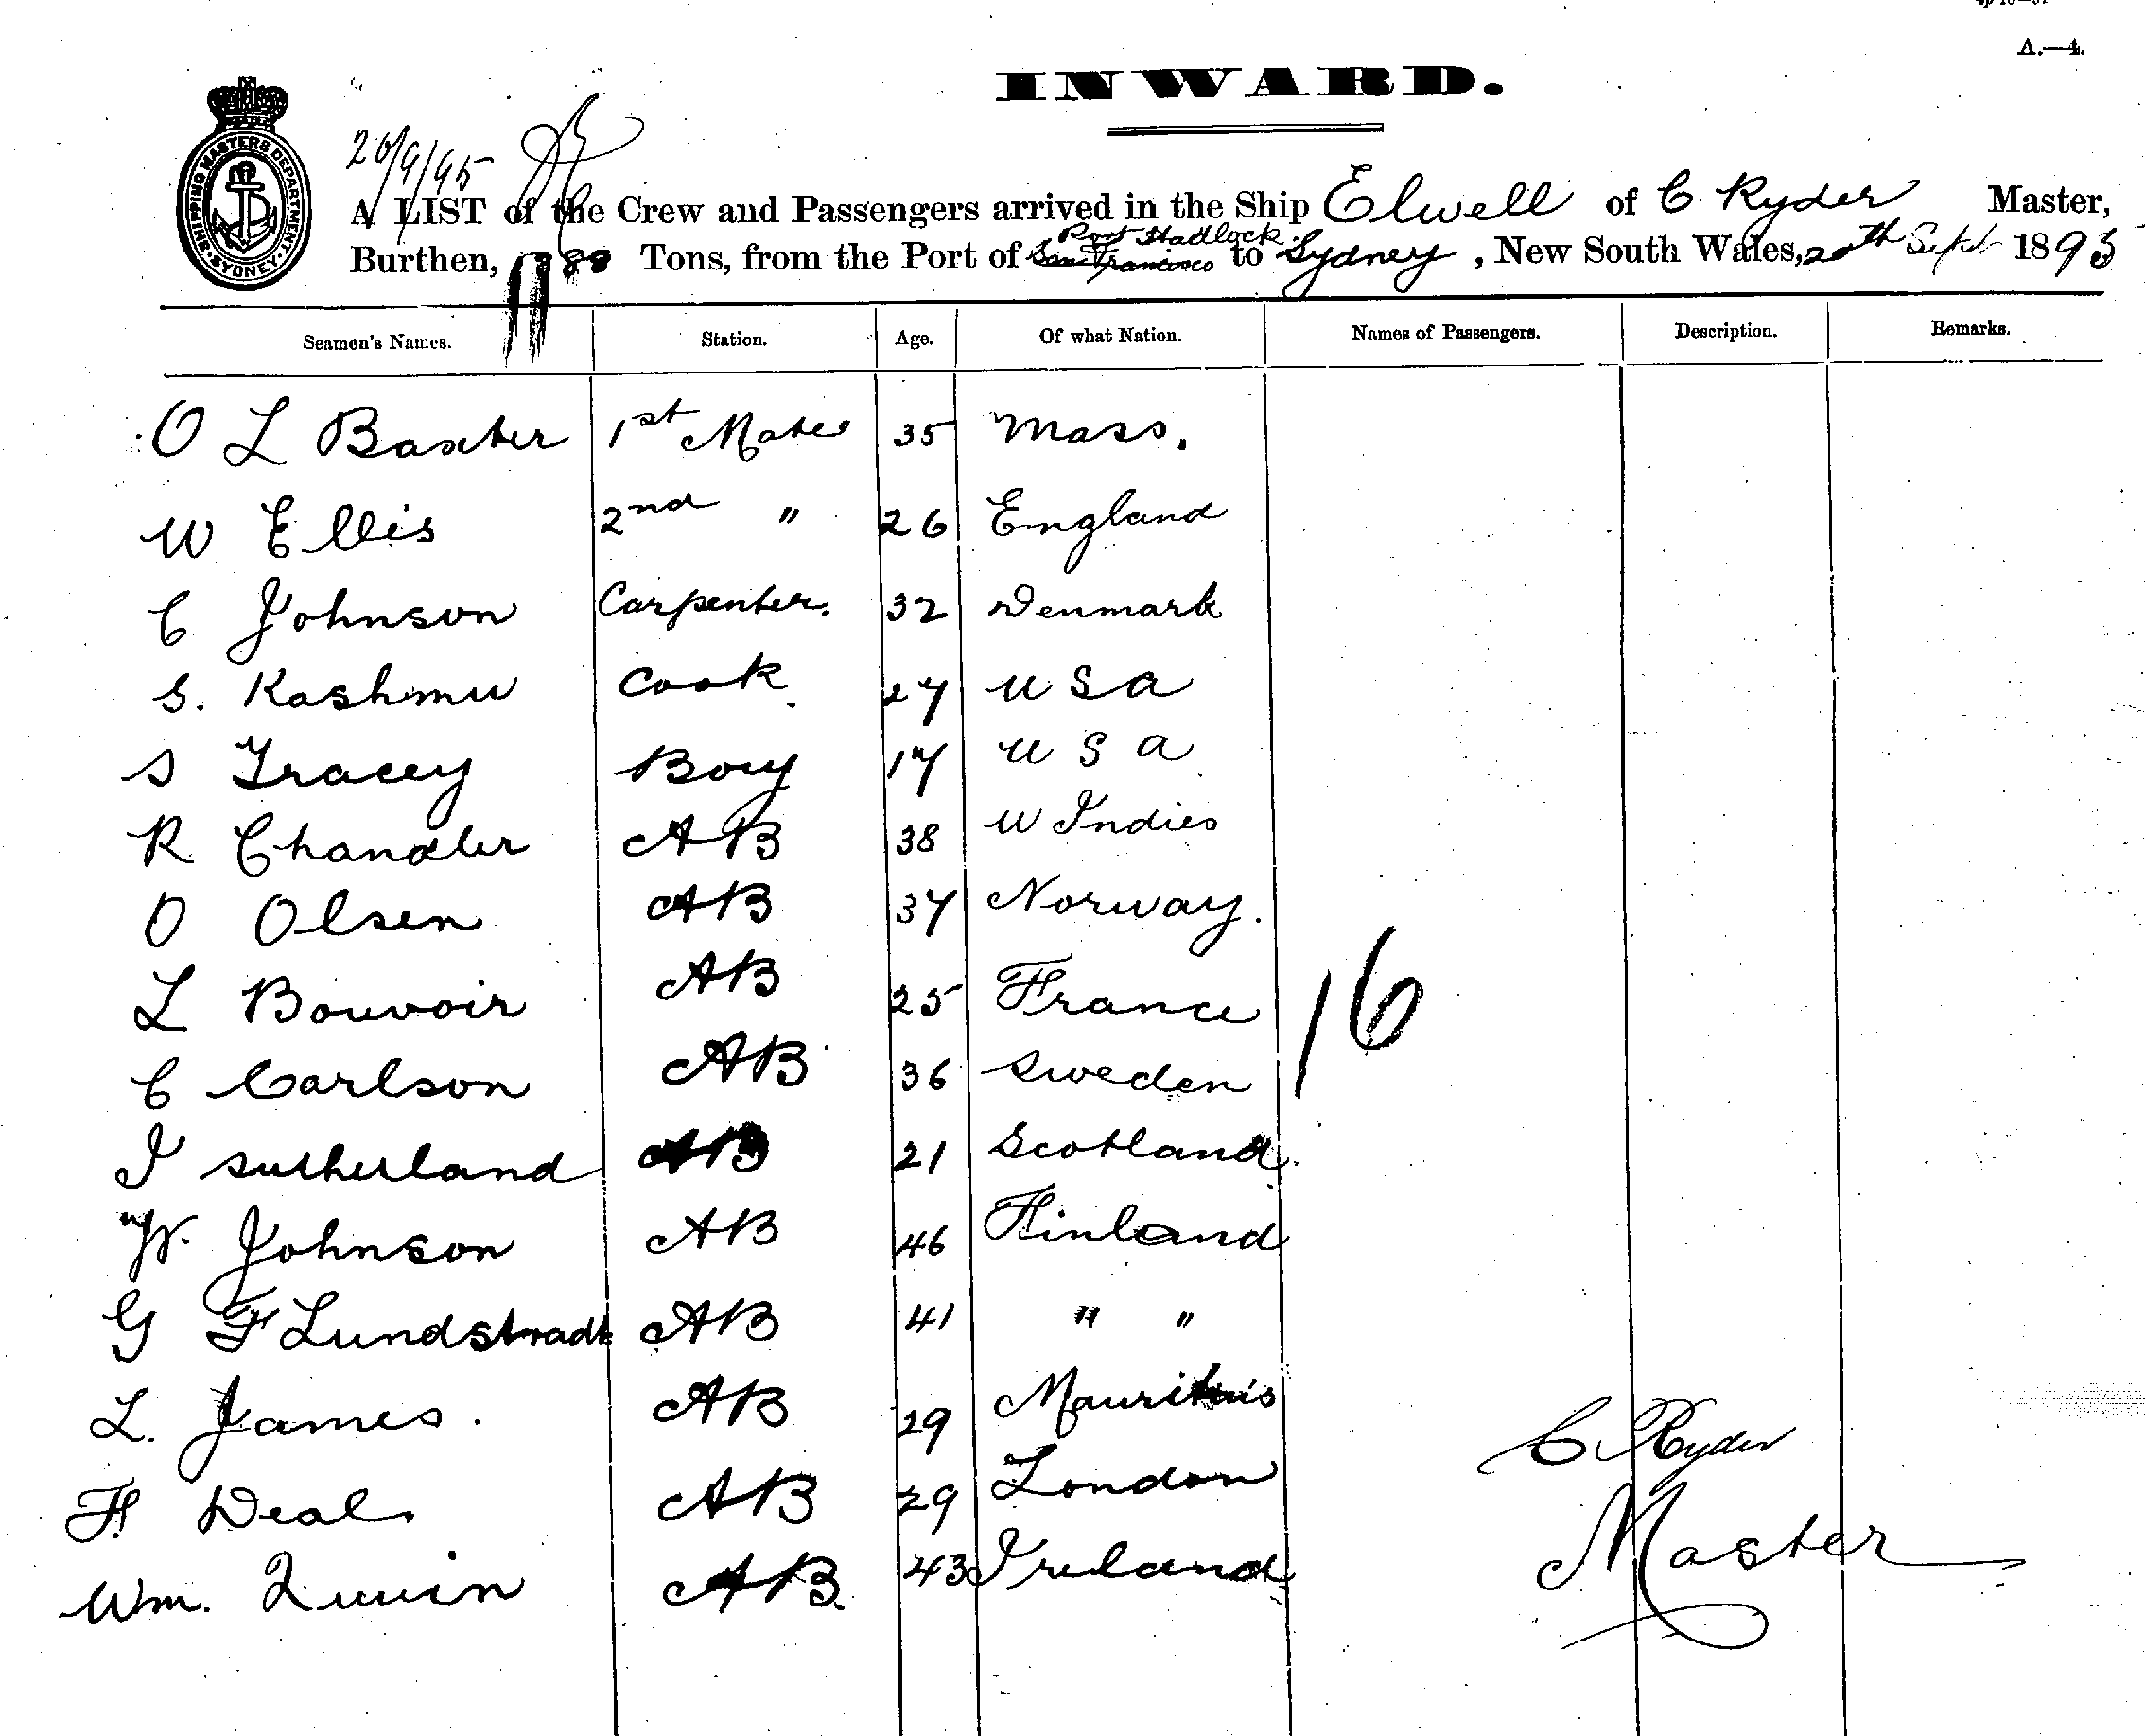 A.—4.
INWARD.
SHIPPING MASTERS DEPARTMENT · SYDNEY ·
20/9/95
A LIST of the Crew and Passengers arrived in the Ship Elwell of C. Ryder Master,
Port Hadlock
Burthen, Tons, from the Port of San Francisco to Sydney, New South Wales, 20th Sept 1895
Seamen's Names. Station. Age. Of what Nation. Names of Passengers. Description. Remarks.
O L Baxter 1st Mate 35 Mass.
W Ellis 2nd " 26 England
C Johnson Carpenter. 32 Denmark
G. Kashmu Cook. 27 U S A
S Tracey Boy 17 U S A
R Chandler AB 38 W Indies
O Olsen AB 37 Norway.
L Bouvoir AB 25 France
16
C Carlson AB 36 Sweden
J Sutherland AB 21 Scotland
W. Johnson AB 46 Finland
G F Lundstradt AB 41 " "
L. James. AB 29 Mauritius
C Ryder
F. Deal. AB 29 London
Master
Wm. Quuin AB. 43 Ireland